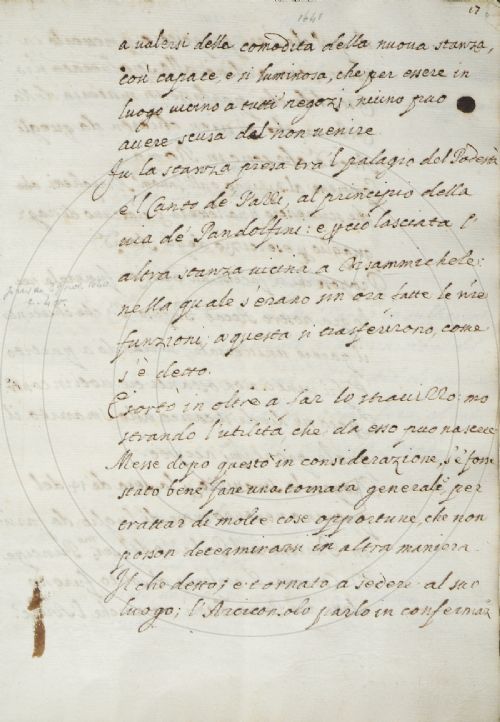 17
1641
a valersi della comodità della nuova stanza,
così capace, e sì luminosa, che per essere in
luogo vicino a tutti negozj, niuno può
avere scusa del non venire.
Fu la stanza presa tra 'l palagio del Podestà
e 'l Canto de' Pazzi, al principio della
via de' Pandolfini: e p̱ciò lasciata l'
altra stanza vicina a Orsammichele;
nella quale s'erano sin ora fatte le nr̃e
funzioni, a questa si trasferirono, come
s'è detto.
Esortò in oltre a far lo stravizzo: mo
strando l'utilità che da esso può nascere
Messe dopo questo in considerazione, s'e' fosse
stato bene fare una tornata generale, per
trattar di molte cose opportune, che non
posson determinarsi in altra maniera.
Il che detto; e tornato a sedere al suo
luogo; l'Arciconsolo parlò in confermaz